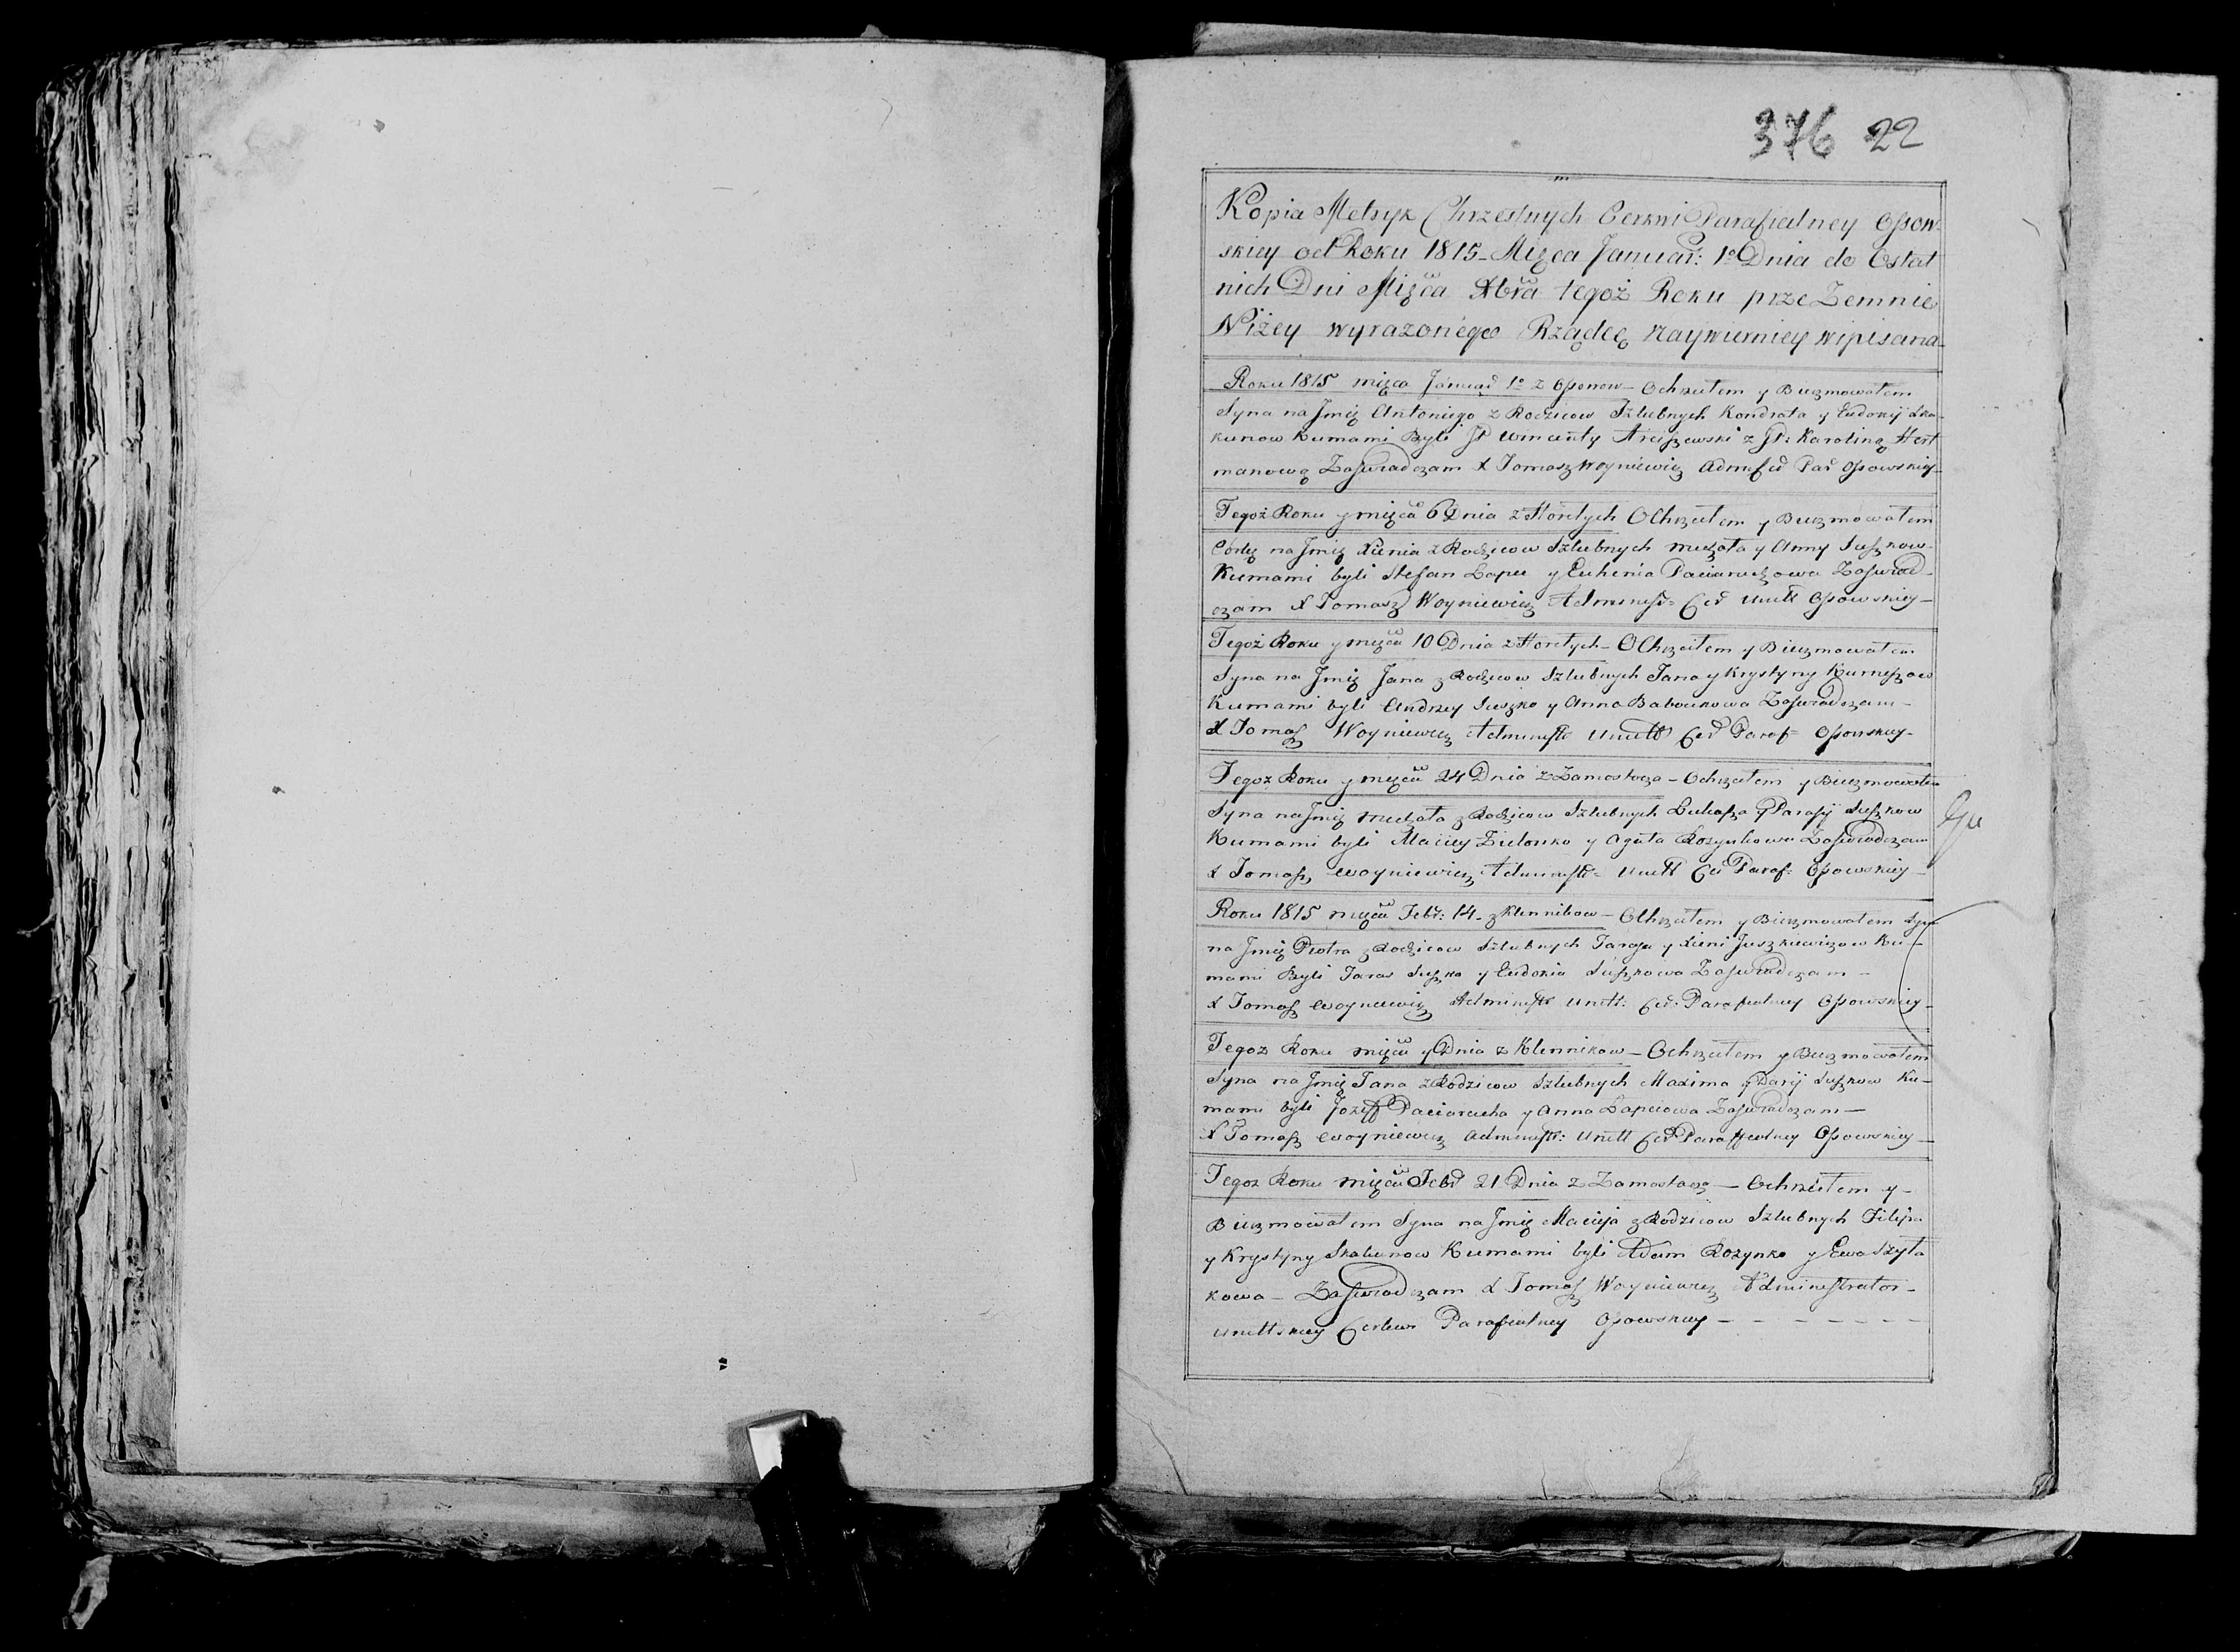 376 22
Kopia Metryk Chrzestnych Cerkwi Parafialney Ossow-
skiey od Roku 1815 Mięca Januar: 1o Dnia do Ostat
nich Dni Mięca Xbra tegoż Roku prze Zemnie
Niżey wyrazonego Rządcę naywierniey wipisana
Roku 1815 mięca Januar 1o z Ossonow – Ochrzcilem y Buzmowalem
Syna na Jmię Antoniego z Rodzicow Szlubnych Kondrata y Eudokij Ska-
kunow Kumami Byli JP Wincenty Arciszewski z JP: Karoliną Hert
manową Zaswiadczam X Tomasz Woyniewicz Par Ossowskiey
Tegoż Roku y mięca 6 Dnia z Horelych Ochrzcilem y Buzmowalem
Corkę na Jmię Xienia z Rodzicow Szlubnych Michala y Anny Suszkow-
Kumami byli Stefan Lapec y Euhenia Paciaruchowa Zaswiad-
czam X Tomasz Woyniewicz Administr Cer Unitt Ossowskiey
Tegoż Roku y mięca 10 Dnia z Horelych – Ochrzcilem y Biezmowalem
Syna na Jmię Jana z Rodzicow Szlubnych Jana y Krystyny
Kumami byli Andrzey Suszko y Anna Babourowa Zaswiadczam –
X Tomasz Woyniewicz Administr Unitt Cer Paraf= Ossowskiey-
Tegoż Roku y mięca 24 Dnia z Zamostocza – Ochrzcilem y Biezmowalem
Syna na Jmię Michala z Rodzicow Szlubnych Lukasza y Parasij Suszkow
Kumami byli Maciey Zielonko y Agata Rozynkowa Zaswiadczam
X Tomasz Woyniewicz Administr= Unitt Cer Paraf= Ossowskiey
Roku 1815 mięca Febr: 14 z Klennikow – Ochrzcilem y Biezmowalem Syna
na Jmię Piotra z Rodzicow Szlubnych y Xieni Juszkiewiczow Ku-
mami Byli Taras Suszko y Eudokia Suszkowa Zaswiadczam –
X Tomasz Woyniewicz Administr Unitt: Cer: Parafialney Ossowskiey
Tegoz Roku mięca y Dnia z Klennikow – Ochrzcilem y Biezmowalem
Syna na Jmię Jana z Rodzicow Szlubnych Maxima y Darij Suszkow Ku-
mami byli Jozeff Paciarucha y Anna Lapciowa Zaswiadczam –
X Tomasz Woyniewicz Administr: Unitt Cer Paraffialney Ossowskiey
Tegoz Roku mięca Febr 21 Dnia z Zamostocza – Ochrzcilem y –
Biezmowalem Syna na Jmię Macieja z Rodzicow Szlubnych Filipa
y Krystyny Skakunow Kumami byli Adam Rozynko y Ewa Szyla
kowa – Zaswiadczam X Tomasz Woyniewicz Administrator –
Unittskiey Cerkwi Parafialney Ossowskiey –